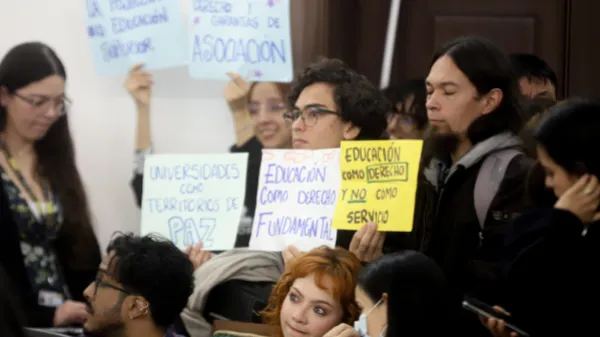 EDUCACIÓN
SUPERIOR
DERECHO Y
GARANTÍAS DE
ASOCIACIÓN
UNIVERSIDADES
COMO
TERRITORIOS DE
PAZ
EDUCACIÓN
COMO DERECHO
FUNDAMENTAL
EDUCACIÓN
COMO DERECHO
Y NO COMO
SERVICIO